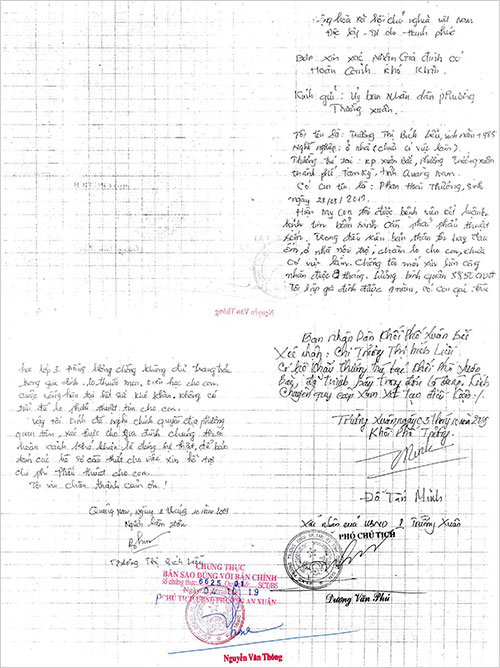 Cộng hoà xã hội chủ nghĩa việt Nam
Độc lập - Tự do - Hạnh phúc
Đơn xin xác Nhận Gia đình có
Hoàn Cảnh Khó Khăn.
Kính gửi : Uỷ ban Nhân dân phường
Trường Xuân.
Tôi tên là: Trương Thị Bích Liễu, sinh năm 1985
Nghề nghiệp: ở nhà (chưa có việc làm).
Thường trú tại: KP xuân Bắc, phường Trường xuân
thành phố Tam Kỳ, tỉnh Quảng Nam.
Có con tên là: Phan Hoài Thương, sinh
ngày 2013.
Hiện Nay Con tôi được bệnh viện kết luận
bệnh tim bẩm sinh Cần phải phẫu thuật
Trong điều kiện bản thân tôi hay đau
ốm, ở nhà nội trợ, chăm lo cho con, chưa
có việc làm. Chồng tôi mới xin làm công
nhân được 8 tháng. Lương bình quân
Tôi lập gia đình được năm, có con gái
học lớp 3. Đồng lương chồng không đủ trang trải
trong gia đình, lo thuốc men, tiền học cho con.
cuộc sống hiện tại hết sức khó khăn. không có
tiền để lo phẫu thuật tim cho con.
Vậy tôi kính đề nghị chính quyền địa phương
quan tâm, xác thực cho gia đình chúng tôi có
hoàn cảnh khó khăn là đúng sự thật, để bản
thân các hồ sơ cần thiết cho việc xin hỗ trợ
chi phí phẫu thuật cho con.
Tôi xin chân thành cảm ơn !
Quảng nam, ngày 2 tháng 10 năm 2019
Người làm đơn
Trương Thị Bích Liễu
Ban nhân Dân Khối Phố Xuân Bắc
Xác nhận : Chị Trương Thị bích Liễu
Có hộ khẩu Thường Trú tại Khối Phố Xuân
Bắc, đã trình bày trong đơn là đúng. Kính
Chuyển quý cấp xem xét tạo điều kiện./.
Trường Xuân, ngày 3 tháng 10 năm 2019
Khối Phố Trưởng
Minh
Đỗ Tấn Minh
Xác nhận của UBND P Trường Xuân
PHÓ CHỦ TỊCH
Dương Văn Phú
CHỨNG THỰC
BẢN SAO ĐÚNG VỚI BẢN CHÍNH
Số chứng thực: 6625 01 SCT/BS
Ngày 04-10-19
CHỦ TỊCH UBND PHƯỜNG AN XUÂN
Nguyễn Văn Thông
Nguyễn Văn Thông